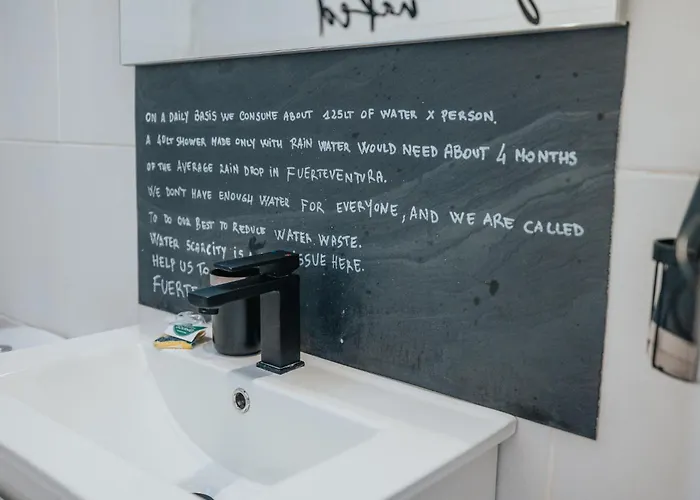 naked
ON A DAILY BASIS WE CONSUME ABOUT 125LT OF WATER X PERSON.
A 40LT SHOWER MADE ONLY WITH RAIN WATER WOULD NEED ABOUT 4 MONTHS
OF THE AVERAGE RAIN DROP IN FUERTEVENTURA.
WE DON'T HAVE ENOUGH WATER FOR EVERYONE, AND WE ARE CALLED
TO DO OUR BEST TO REDUCE WATER WASTE.
WATER SCARCITY IS A ISSUE HERE.
HELP US TO
FUERTE